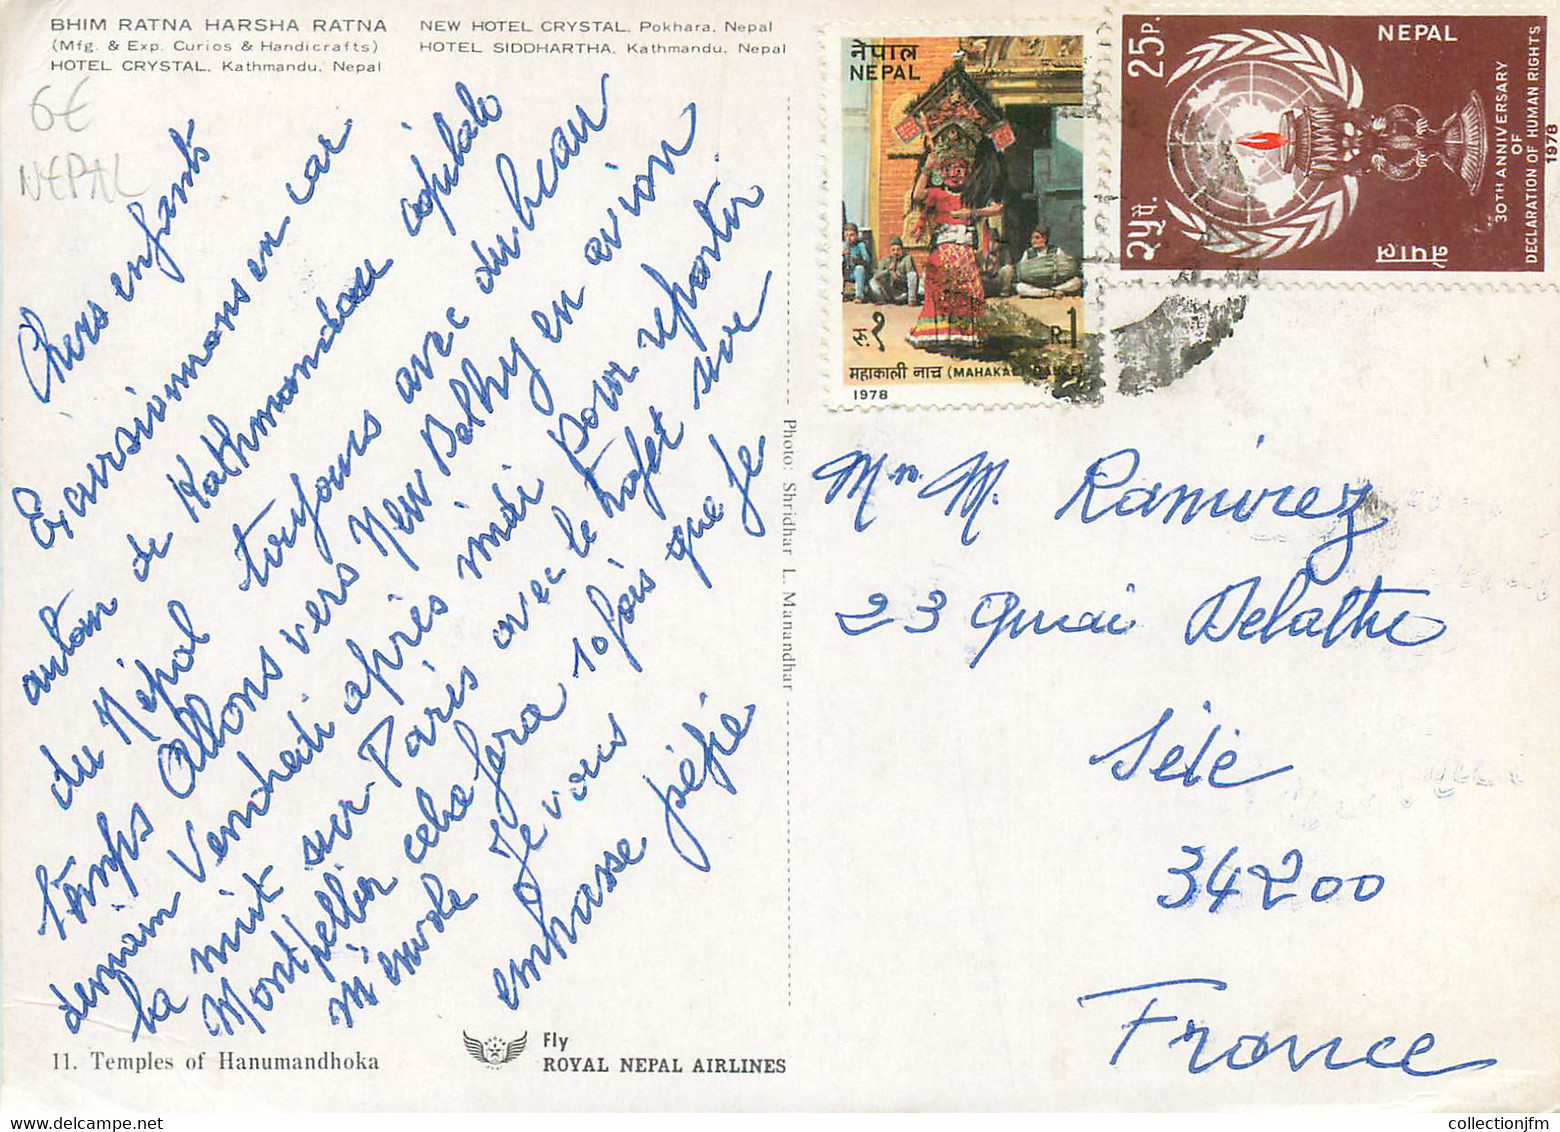 BHIM RATNA HARSHA RATNA
(Mfg. & Exp. Curios & Handicrafts)
HOTEL CRYSTAL. Kathmandu. Nepal
NEW HOTEL CRYSTAL, Pokhara, Nepal
HOTEL SIDDHARTHA. Kathmandu, Nepal
6€
NEPAL
Chers enfants
Excursionnons en car
autour de Kathmandou capitale
du Népal toujours avec du beau
temps Allons vers New Delhy en avion
demain Vendredi après midi pour repartir
la nuit sur Paris avec le trajet sur
Montpellier cela fera 10 fois que je
m'envole Je vous
embrasse pépie
Photo: Shridhar L. Manandhar
11. Temples of Hanumandhoka
Fly
ROYAL NEPAL AIRLINES
नेपाल
NEPAL
रु. १
R.1
महाकाली नाच (MAHAKALI DANCE)
1978
25 P.
NEPAL
२५ पै.
नेपाल
30TH ANNIVERSARY
OF
DECLARATION OF HUMAN RIGHTS
1978
Mr. M. Ramirez
23 Quai Delattre
Sète
34200
France
collectionjfm